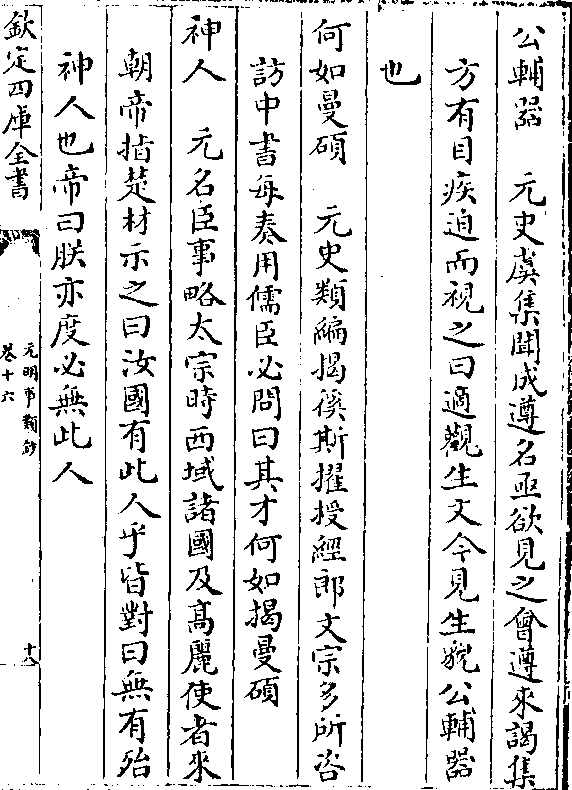 公輔器　元史虞集聞成遵名亟欲見之會遵來謁集
方有目疾迫而視之曰適觀生文今見生貌公輔器
也
何如曼碩　元史類編揭徯斯擢授經郎文宗多所咨
訪中書每奏用儒臣必問曰其才何如揭曼碩
神人　元名臣事略太宗時西域諸國及髙麗使者來
朝帝指楚材示之曰汝國有此人乎皆對曰無有殆
神人也帝曰朕亦度必無此人
欽定四庫全書
元明事類鈔
卷十六
十八